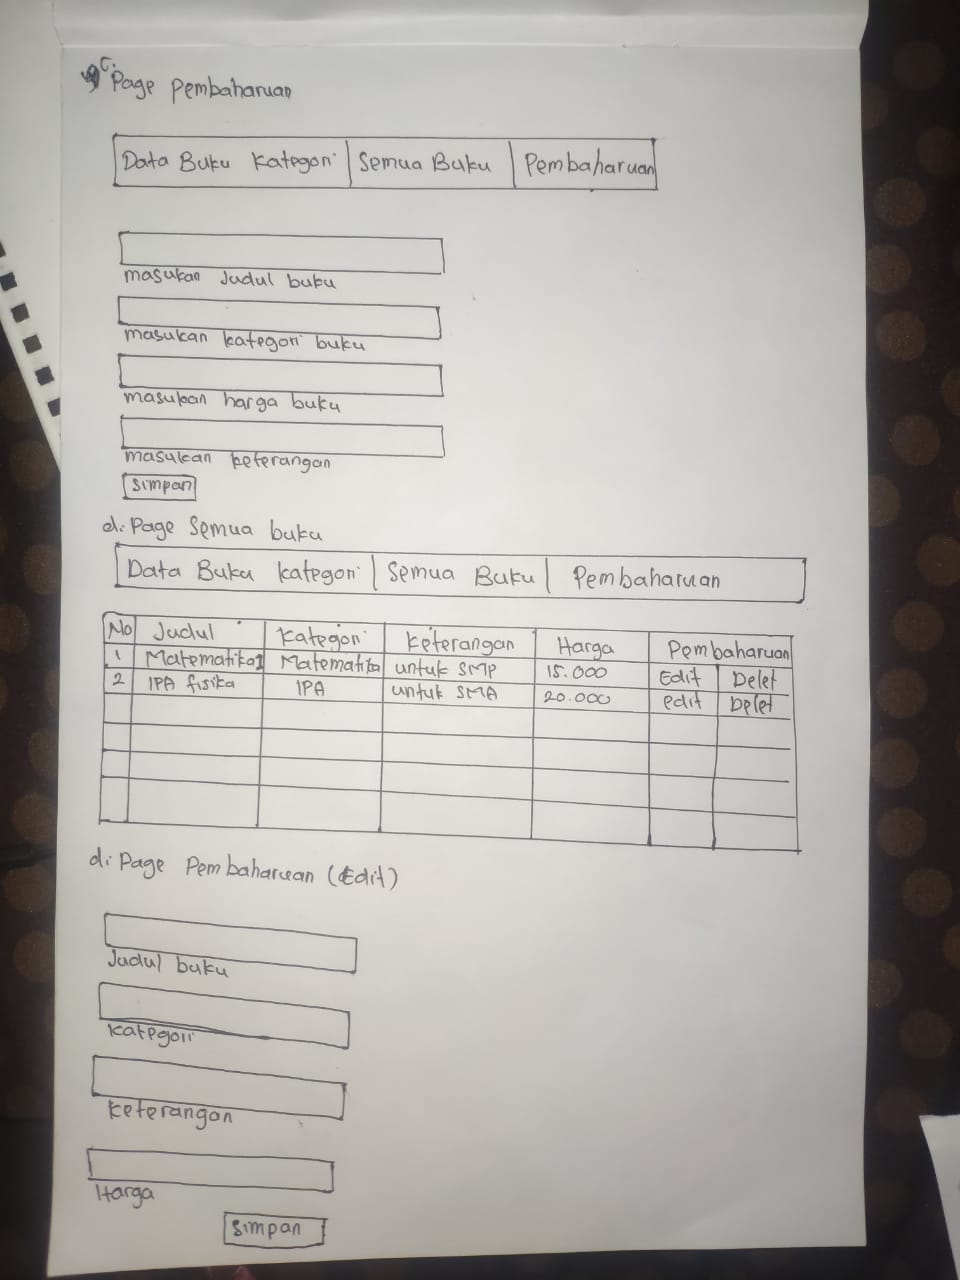 c. Page Pembaharuan
Data Buku Kategori Semua Buku Pembaharuan
masukan Judul buku
masukan kategori buku
masukan harga buku
masukan keterangan
simpan
d. Page Semua buku
Data Buku kategori Semua Buku Pembaharuan
No Judul Kategori Keterangan Harga Pembaharuan
1 Matematika 1 Matematika untuk SMP 15.000 Edit Delet
2 IPA fisika IPA untuk SMA 20.000 edit Delet
d. Page Pembaharuan (Edit)
Judul buku
kategori
keterangan
Harga
simpan